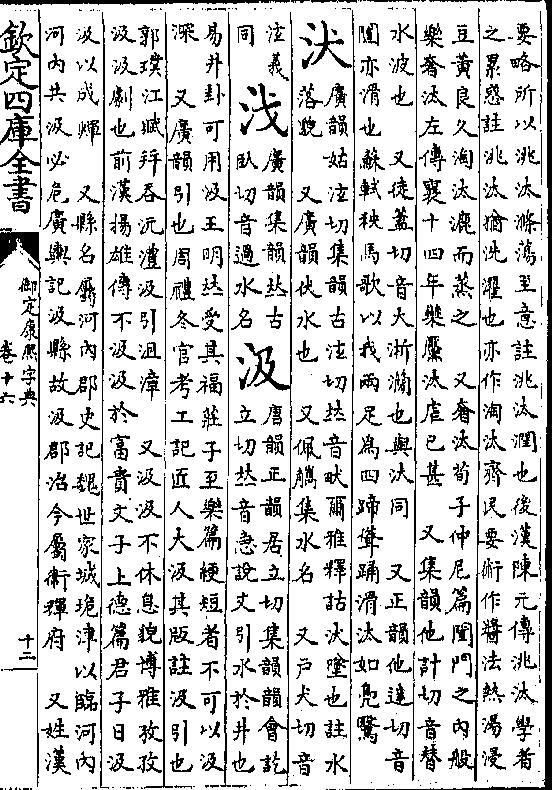 要略所以洮汰滌蕩至意註洮汰潤也後漢陳元傳洮汰學者
之累惑註洮汰猶洗濯也亦作淘汰齊民要術作醬法熱湯浸
豆黃良久淘汰漉而蒸之 又奢汰荀子仲尼篇閨門之內般
樂奢汰左傳襄十四年欒黶汰虐已甚 又集韻他計切音替
水波也 又徒蓋切音大淅也與汏同 又正韻他達切音
闥亦滑也蘇軾秧馬歌以我兩足爲四蹄聳踊滑汰如鳧鷖
汱
廣韻姑泫切集韻古泫切𠀤音畎爾雅釋詁汱墜也註水
落貌 又廣韻伏水也 又佩觿集水名 又戸犬切音
泫義
同
廣韻集韻𠀤古
臥切音過水名
汲
唐韻正韻居立切集韻韻會訖
立切𠀤音急說文引水於井也
易井卦可用汲王明𠀤受其福莊子至樂篇綆短者不可以汲
深 又廣韻引也周禮冬官考工記匠人大汲其版註汲引也
郭璞江賦幷吞沅澧汲引沮漳 又汲汲不休息貌博雅孜孜
汲汲劇也前漢揚雄傳不汲汲於富貴文子上德篇君子日汲
汲以成輝 又縣名屬河內郡史記魏世家城垝津以臨河內
河內共汲必危廣輿記汲縣故汲郡治今屬衛輝府 又姓漢
欽定四庫全書
御定康熙字典
卷十六
十二